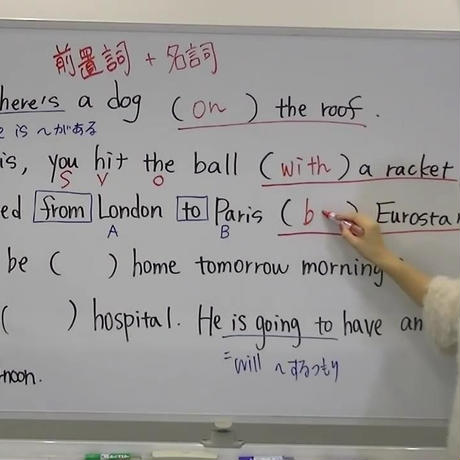 前置詞 + 名詞
here's a dog ( on ) the roof.
is 〜がある
is, you hit the ball (with) a racket
S V O
ed from London to Paris ( b ) Eurosta
A B
be ( ) home tomorrow morning
( ) hospital. He is going to have an
=will 〜するつもり
noon.